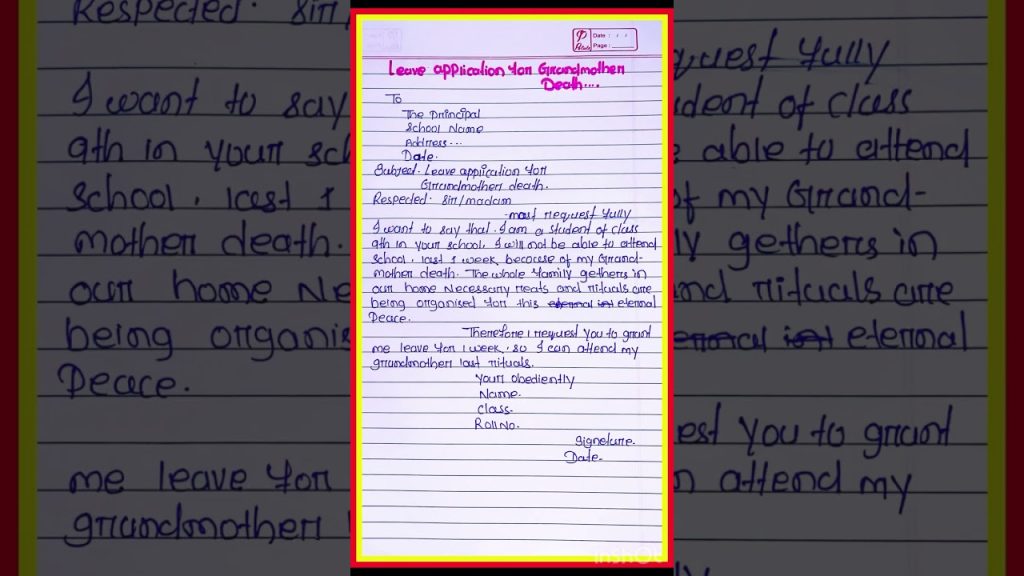 Date : / /
Page :
Leave application for Grandmother
Death....
To
The Principal
School Name
Address...
Date.
Subject. Leave application for
Grandmother death.
Respected. Sir/madam
most request fully
I want to say that. I am a student of class
9th in your school, I will not be able to attend
school, last 1 week, becocese of my Grand-
mother death. The whole family gethers in
our home Necessary and rituals are
being organised for this eternal
Peace.
Therefore I request you to grant
me leave for 1 week, so I can attend my
grandmother last rituals.
Your obediently
Name.
Class.
Roll No.
Signeture.
Date.